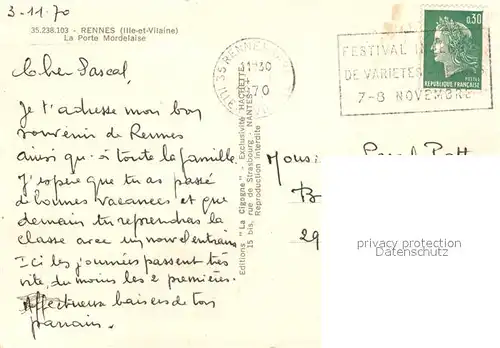 3-11-70
35.238.103 - RENNES (Ille-et-Vilaine)
La Porte Mordelaise
Cher Pascal,
Je t'adresse mon bon
souvenir de Rennes
ainsi qu'à toute la famille.
J'espère que tu as passé
de bonnes vacances et que
demain tu reprendras la
classe avec un nouvel entrain.
Ici les journées passent très
vite, du moins les 2 premières.
Affectueux baisers de ton
parrain.
Editions "La Cigogne" - Exclusivité HACHETTE
15 bis, rue de Strasbourg - NANTES
Reproduction interdite
35 RENNES
70
FESTIVAL
DE VARIETES
7-8 NOVEMBRE
0,30
POSTES
REPUBLIQUE FRANÇAISE
29
privacy protection
Datenschutz